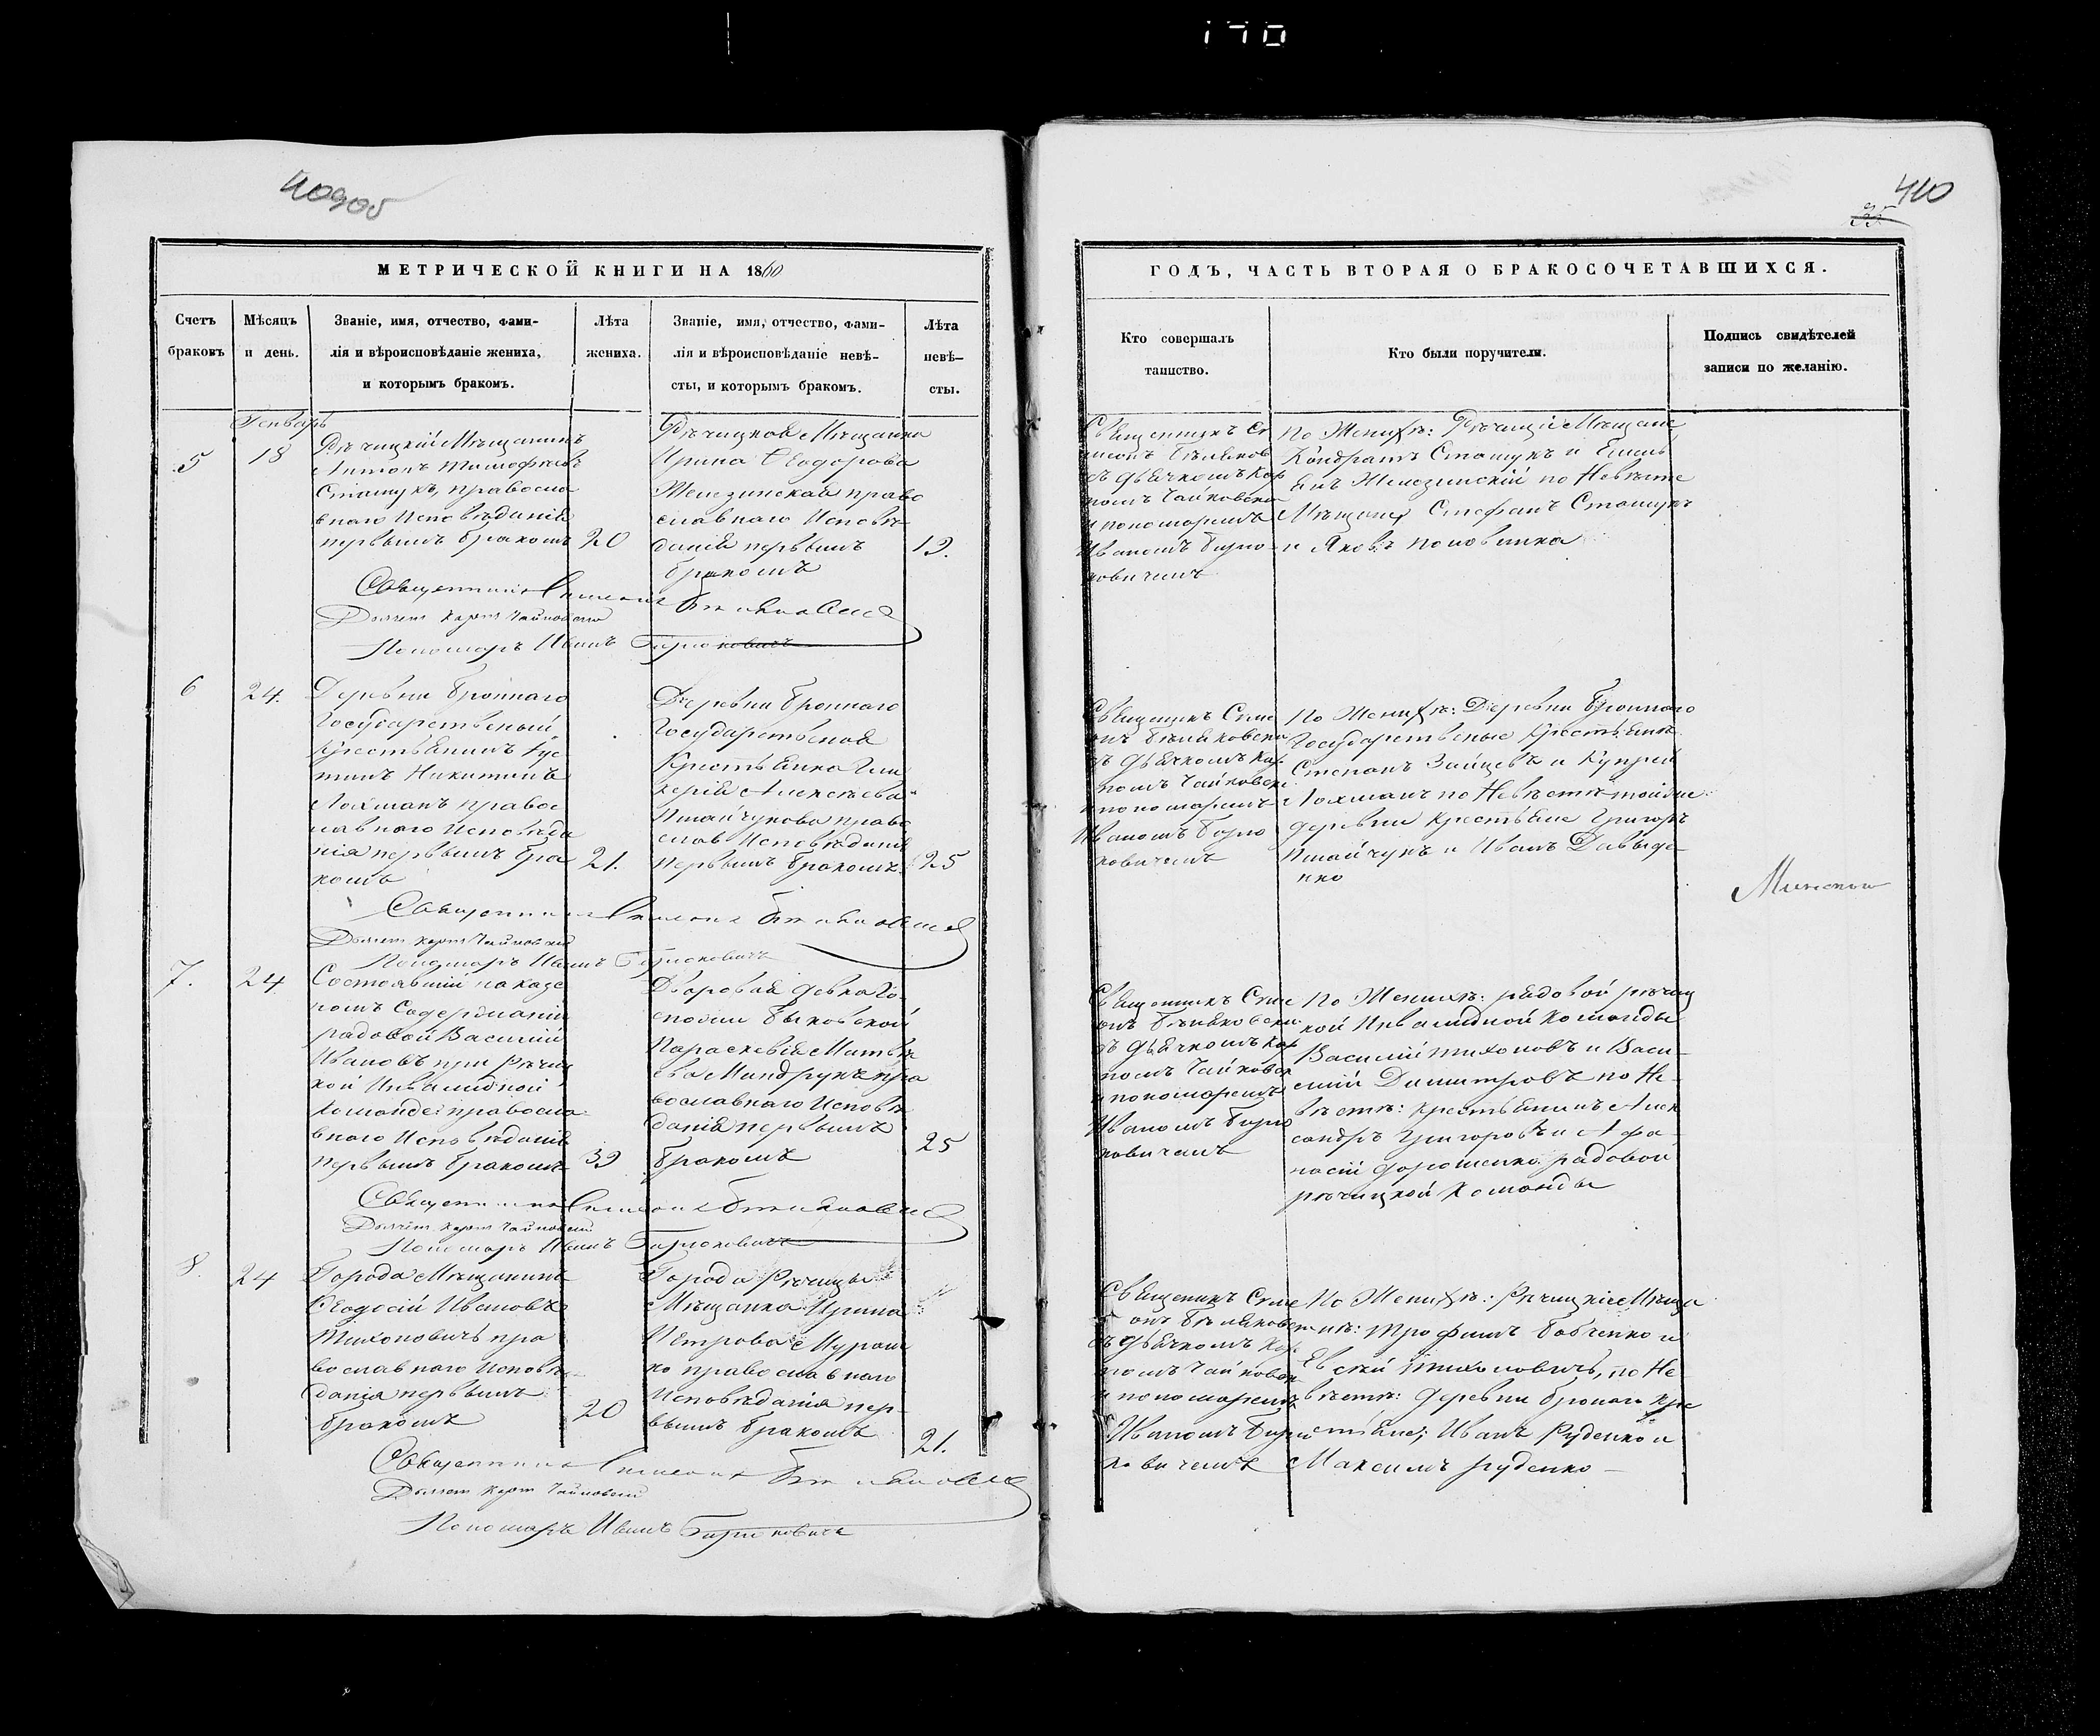 170
409об
410
35
МЕТРИЧЕСКОЙ КНИГИ НА 1860
ГОДЪ, ЧАСТЬ ВТОРАЯ О БРАКОСОЧЕТАВШИХСЯ.
Счетъ
браковъ
Мѣсяцъ
и день.
Званіе, имя, отчество, фами-
лія и вѣроисповѣданіе жениха,
и которымъ бракомъ.
Лѣта
жениха.
Званіе, имя, отчество, фами-
лія и вѣроисповѣданіе невѣ-
сты, и которымъ бракомъ.
Лѣта
невѣ-
сты.
Кто совершалъ
таинство.
Кто были поручители.
Подпись свидѣтелей
записи по желанію.
Генварь
5
18
Рѣчицкій Мѣщанинъ
Антонъ Тимофѣевъ
Сташукъ, правосла
внаго Исповѣданія
первымъ бракомъ
20
Рѣчицкая Мѣщанка
Ирина Ѳеодорова
Железинская право
славнаго Исповѣ
данія первымъ
бракомъ
19.
Священникъ Си
меонъ
съ дьячкомъ Кар
помъ Чайковски
и пономаремъ
Иваномъ Бирю
ковичемъ
По Женихѣ: Рѣчицкіе Мѣщане
Кондратъ Сташукъ и Емель
янъ Железинскій по Невѣсте
Мѣщане Стефанъ Сташукъ
и Яковъ Половинка
Священникъ Симеонъ
Дьячекъ Карпъ Чайковскій
Пономарь Иванъ Бирюковичъ
6
24.
Деревни Броннаго
Государственый
Крестьянинъ Іус
тинъ Никитинъ
Лохманъ правос
лавнаго Исповѣда
нія первымъ бра
комъ
21.
Деревни Броннаго
Государственая
Крестьянка Гли
керія Алексѣева
право
слав Исповѣданія
первымъ бракомъ
25
Священикъ Симе
онъ
съ дьячкомъ Кар
помъ Чайковски
и пономаремъ
Иваномъ Бирю
ковичемъ
По Женихѣ: Деревни Броннаго
Государственые Крестьяне
Степанъ Зайцевъ и Купрей
Лохманъ по Невѣстѣ тойже
деревни Крестьяне Григоръ
и Иванъ Давыде
нко
Священникъ Симеонъ
Дьячекъ Карпъ Чайковскій
Пономарь Иванъ Бирюковичъ
7.
24
Состоявшій на казе
номъ Содержаніи
радовой Василій
Ивановъ при Рѣчиц
кой Инвалидной
Команде правосла
внаго Исповѣданія
первымъ бракомъ
39
Дворовая девка Го
спожи Быковской
Параскевія Матвѣ
ева Миндрукъ пра
вославнаго Исповѣ
данія первымъ
бракомъ
25
Священникъ Симе
онъ
съ дьячкомъ Кар
помъ Чайковск
и пономаремъ
Иваномъ Бирю
ковичемъ
По Женихѣ: рядовой рѣчиц
кой Инвалидной Команды
Василій Тихоновъ и Васи
лий Димитровъ по Не
вѣстѣ: крестьянинъ Алек
сандръ Григоровъ и Афа
насій Дорошенко радовой
рѣчицкой Команды
Священникъ Симеонъ
Дьячекъ Карпъ Чайковскій
Пономарь Иванъ Бирюковичъ
8.
24
Города Мѣщанинъ
Ѳеодосій Ивановъ
Тихоновичъ пра
вославнаго Исповѣ
данія первымъ
бракомъ
20
Города Рѣчицы
Мѣщанка Ирина
Петрова Мураш
ко православнаго
Исповѣданія пер
вымъ бракомъ
21.
Священикъ Симе
онъ
съ дьячкомъ Кар
помъ Чайковск
и пономаремъ
Иваномъ Бирю
ковичемъ
По Женихѣ: Рѣчицкіе Мѣща
не: Трофимъ Бобченко и
Евсѣй Тихоновичъ, по Не
вѣстѣ: деревни Бронаго Кре
стьяне; Иванъ Руденко и
Максимъ Руденко
Священникъ Симеонъ
Дьячекъ Карпъ Чайковскій
Пономарь Иванъ Бирюковичъ